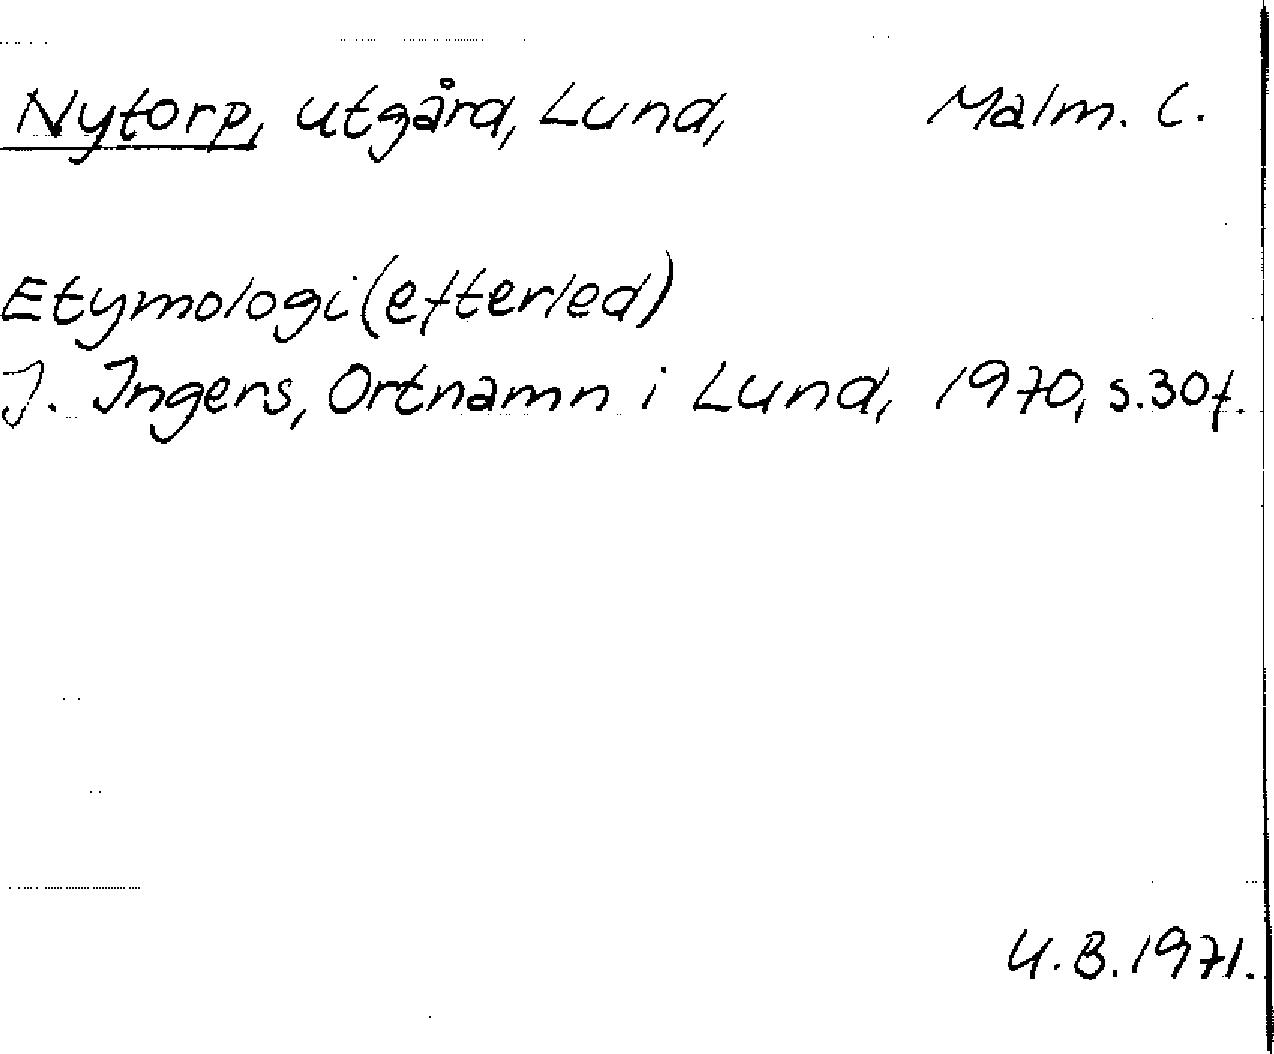 Nytorp, utgård, Lund, Malm. C.
Etymologi (efterled)
J. Ingers, Ortnamn i Lund, 1970, s. 30 f.
U.B. 1971.